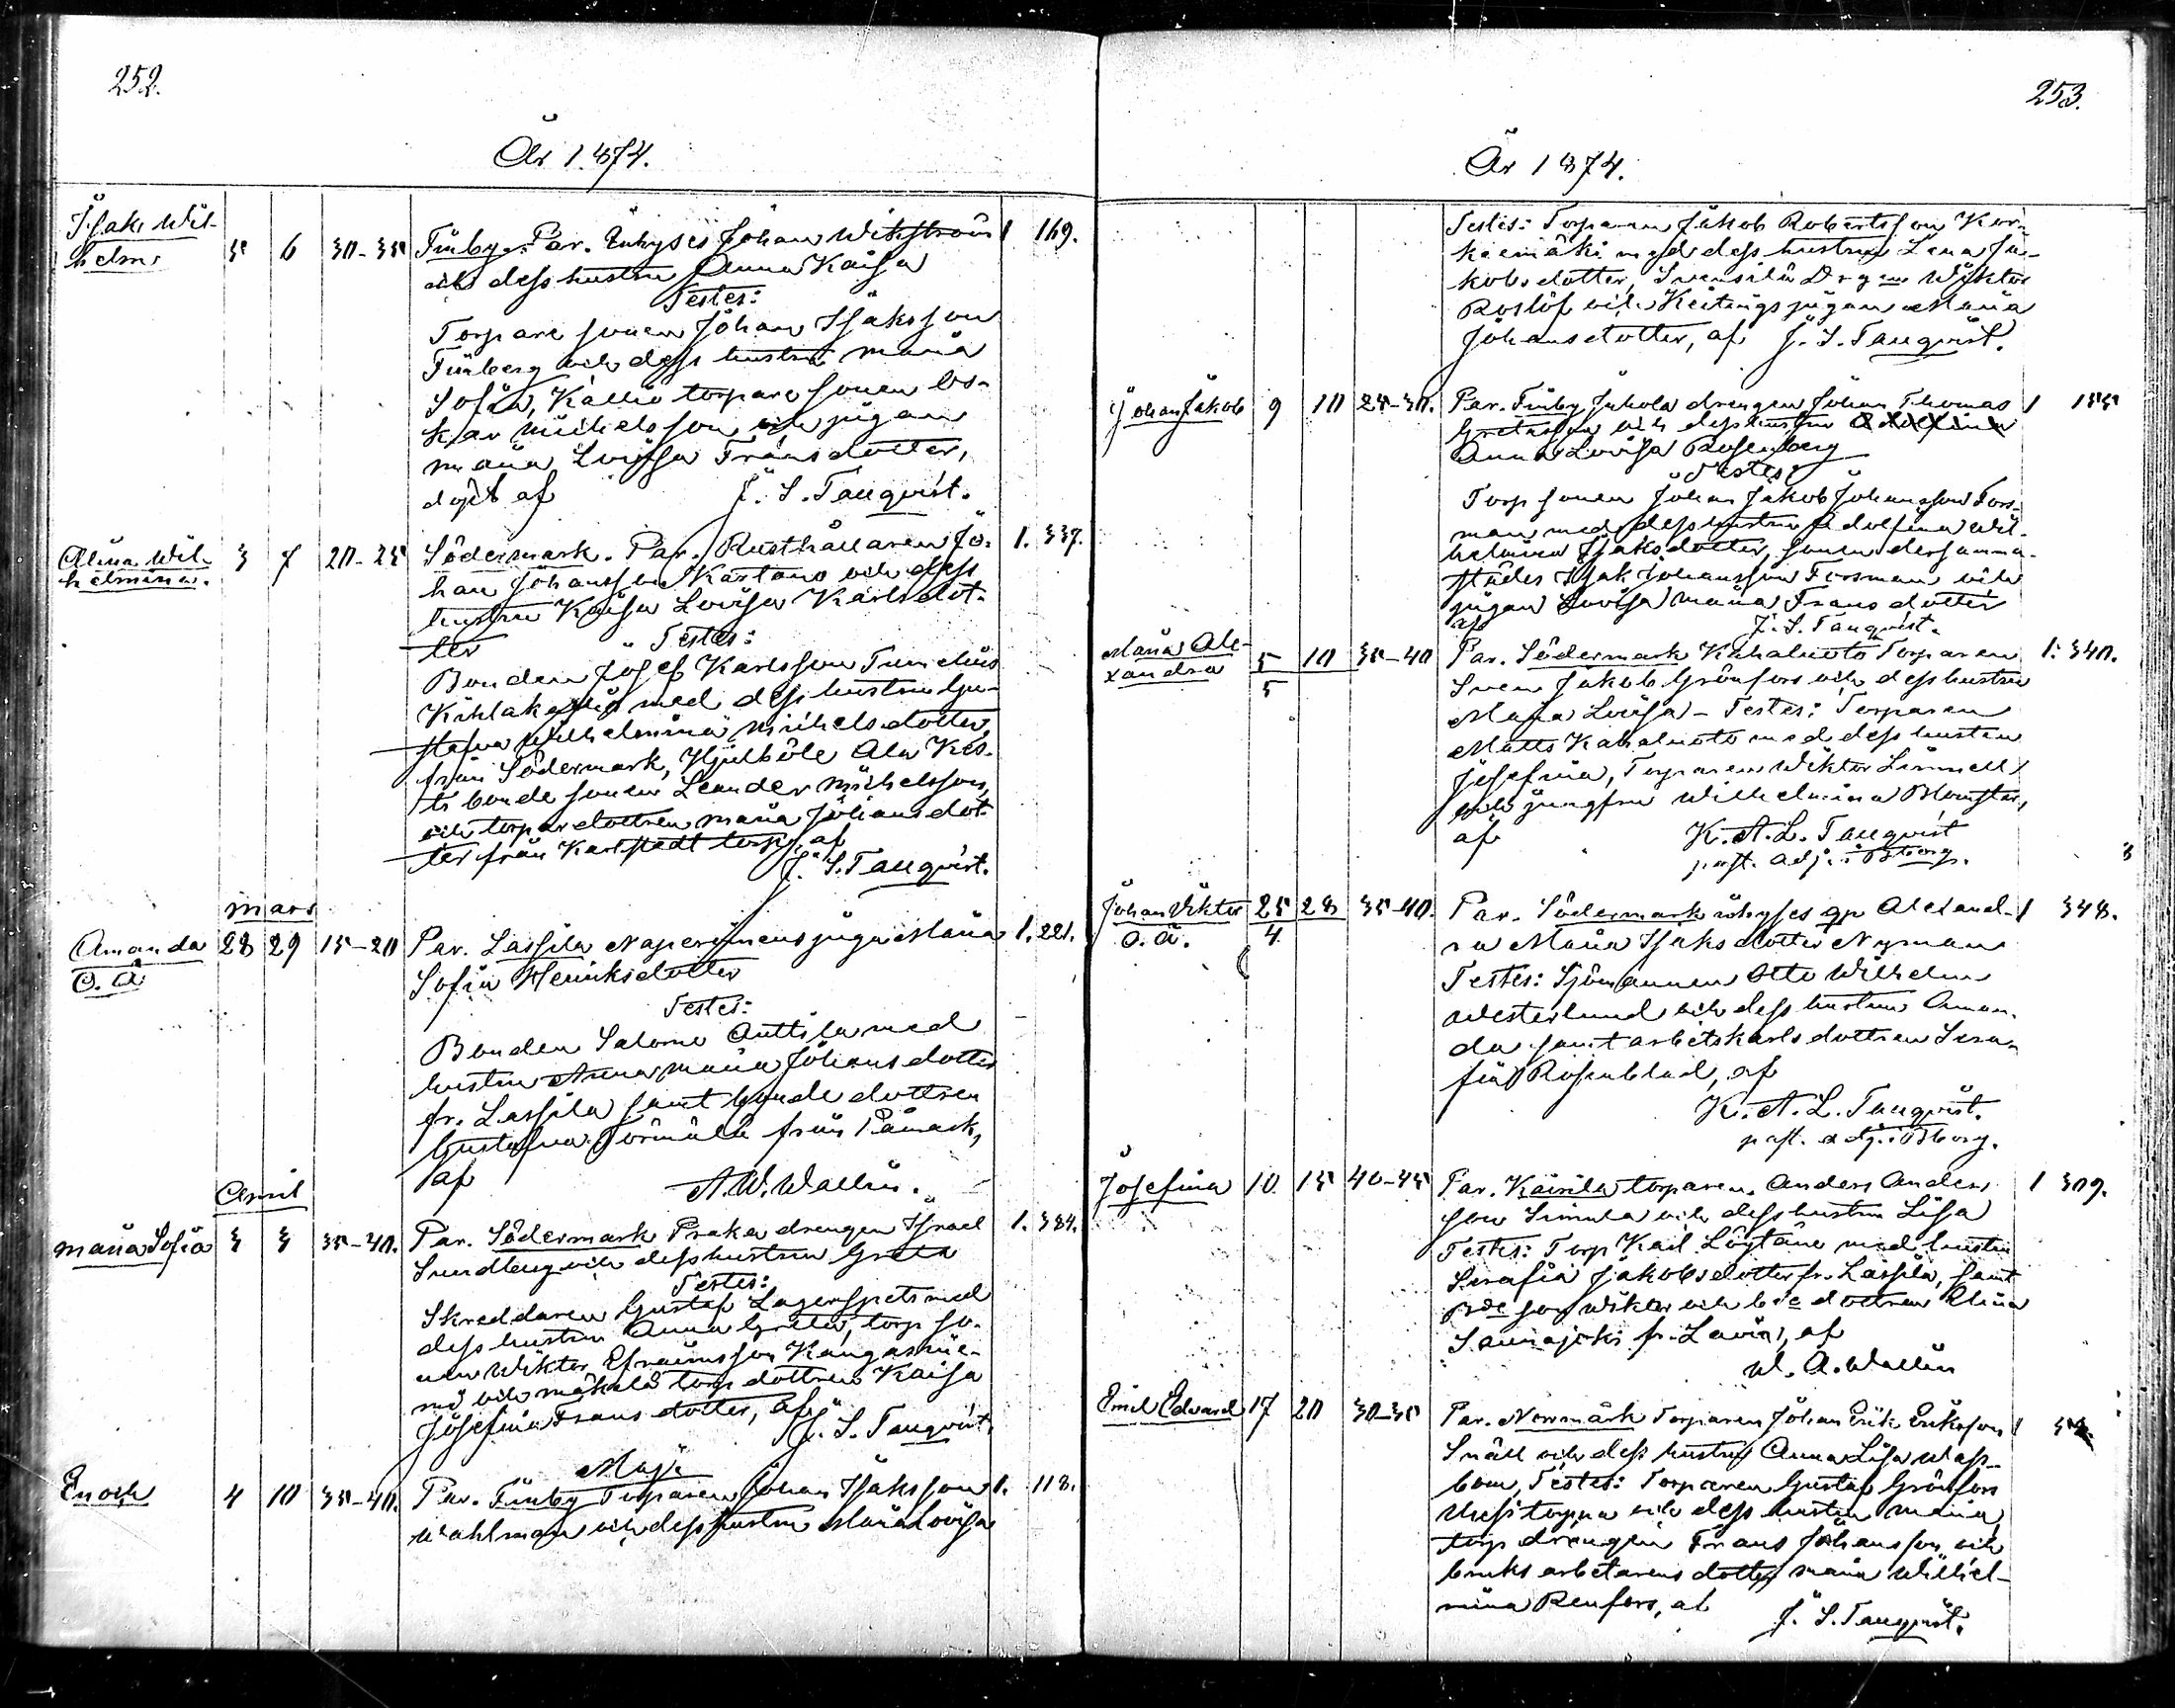 252.
År 1874.
Isak Wil-
helm. 5 6 30-35 Finby. Par. Inhyses Johan Wikström 1 169.
och dess hustru Anna Kaisa
Testes:
Torpare sonen Johan Isaksson
Finberg och dess hustru Maria
Sofia, Kallio torpare sonen Os-
kar Michelsson och pigan
Maria Lovisa Fransdotter,
döpt af J. S. Tanqvist.
Alina Wil-
helmina. 3 7 20-25 Södermark. Par. Rusthållaren Jo- 1. 337.
han Johansson Kartano och dess
hustru Kaisa Lovisa Karlsdot-
ter Testes:
Bonden Josef Karlsson
med dess hustru Gu-
stafva Wilhelmina Michelsdotter,
från Södermark, Hjulböle Ala Kes-
ti bonde sonen Leander Michelsson,
och torparedottren Maria Johansdot-
ter från Karlstedt torp, af
J. S. Tanqvist.
Mars
Amanda 28 29 15-20 Par. Lassila pigan Maria 1. 221.
O. Ä Sofia Henriksdotter
Testes:
Bonden Salomo Anttila med
hustru Anna Maria Johansdotter
fr. Lassila samt bonde dottren
Gustafva Törmälä från Påmark,
af A. W. Wallin.
April
Maria Sofia 3 3 35-40. Par. Södermark Praka drengen Israel 1. 384.
Sundberg och dess hustru Greta
Testes:
Skreddaren Gustaf Lagerspets med
dess hustru Anna Greta, torp so-
nen Wiktor Efraimsson Kangasnie-
mi och Mäkelä torp dottren Kaisa
Josefina Fransdotter, af J. S. Tanqvist.
Maji
Enoch 4 10 35-40. Par. Finby Torparen Johan Isaksson 1. 118.
Wahlman och dess hustru Maria Lovisa
253.
År 1874.
Testes: Torparen Jakob Robertsson Kor-
keemäki med dess hustru Lena Ja-
kobsdotter, Svensilä Drgen Wiktor
Roslöf och pigan Maria
Johansdotter, af J. S. Tanqvist.
Johan Jakob 9 10 25-30. Par. Finby Juhola drengen Johan Thomas 1 155
Gretasson och dess hustru Adolfina
Anna Lovisa Rosenberg
Testes:
Torp sonen Johan Jakob Johansson Fors-
man med dess hustru Adolfina Wil-
helmina Isaksdotter, sonen dersamma-
städes Isak Johansson Forsman och
pigan Lovisa Maria Fransdotter
af J. S. Tanqvist.
Maria Ale-
xandra 5/5 10 35-40 Par. Södermark Kahaluoto Torparen 1. 340.
Sven Jakob Grönfors och dess hustru
Maja Lovisa - Testes: Torparen
Matts Kahaluoto med dess hustru
Josefina, Torparen Wiktor Linnell
och jungfru Wilhelmina Blomster,
af K. A. L. Tanqvist
past. adj. i Btborg.
Johan Viktor 25/4 28 35-40. Par. Södermark inhyses qp Alexand- 1 348.
O. ä. ra Maria Isaksdotter Nyman
Testes: Sjömannen Otto Wilhelm
Westerlund och dess hustru Aman-
da samt arbetskarls dottren Sera-
fia Rosenblad, af
K. A. L. Tanqvist.
past. adj. i Btborg.
Josefina 10 15 40-45 Par. Kairila torparen Anders Anders- 1 309.
son Simula och dess hustru Lisa
Testes: Torp Karl Löytäne med hustru
Serafia Jakobsdotter fr. Lassila, samt
Bde son Wiktor och bde dottren Elina
Samajoki fr. Lavia, af
W. A. Wallin
Emil Edvard 17 20 30-35 Par. Norrmark Torparen Johan Erik Eriksson 1
Snäll och dess hustru Anna Lisa Wass-
bom, Testes: Torparen Gustaf Grönfors
och dess hustru Maria,
torp drengen Frans Johansson och
bruks arbetarens dotter Maria Wilhel-
mina Renfors, af J. S. Tanqvist.